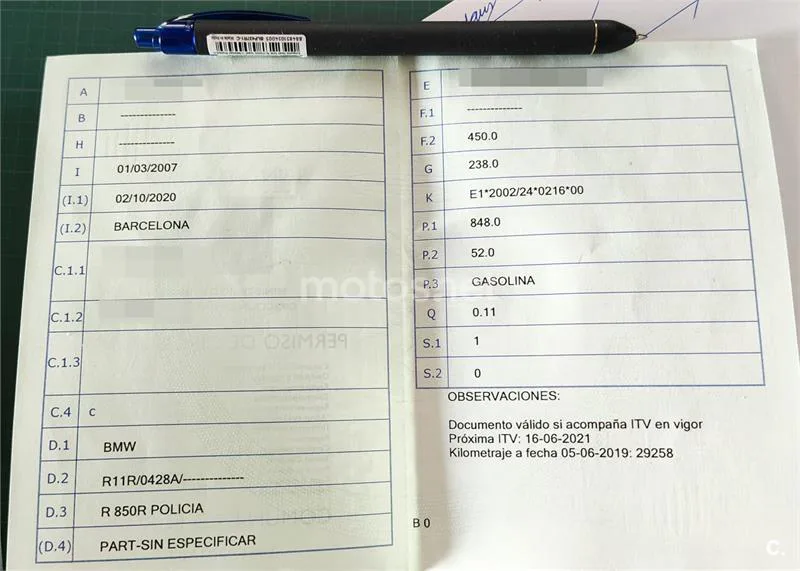 A
B --------------
H --------------
I 01/03/2007
(I.1) 02/10/2020
(I.2) BARCELONA
C.1.1
C.1.2
C.1.3
C.4 c
D.1 BMW
D.2 R11R/0428A/--------------
D.3 R 850R POLICIA
(D.4) PART-SIN ESPECIFICAR
E
F.1 --------------
F.2 450.0
G 238.0
K E1*2002/24*0216*00
P.1 848.0
P.2 52.0
P.3 GASOLINA
Q 0.11
S.1 1
S.2 0
OBSERVACIONES:
Documento válido si acompaña ITV en vigor
Próxima ITV: 16-06-2021
Kilometraje a fecha 05-06-2019: 29258
B 0
PERMISO DE
motos.net
C.